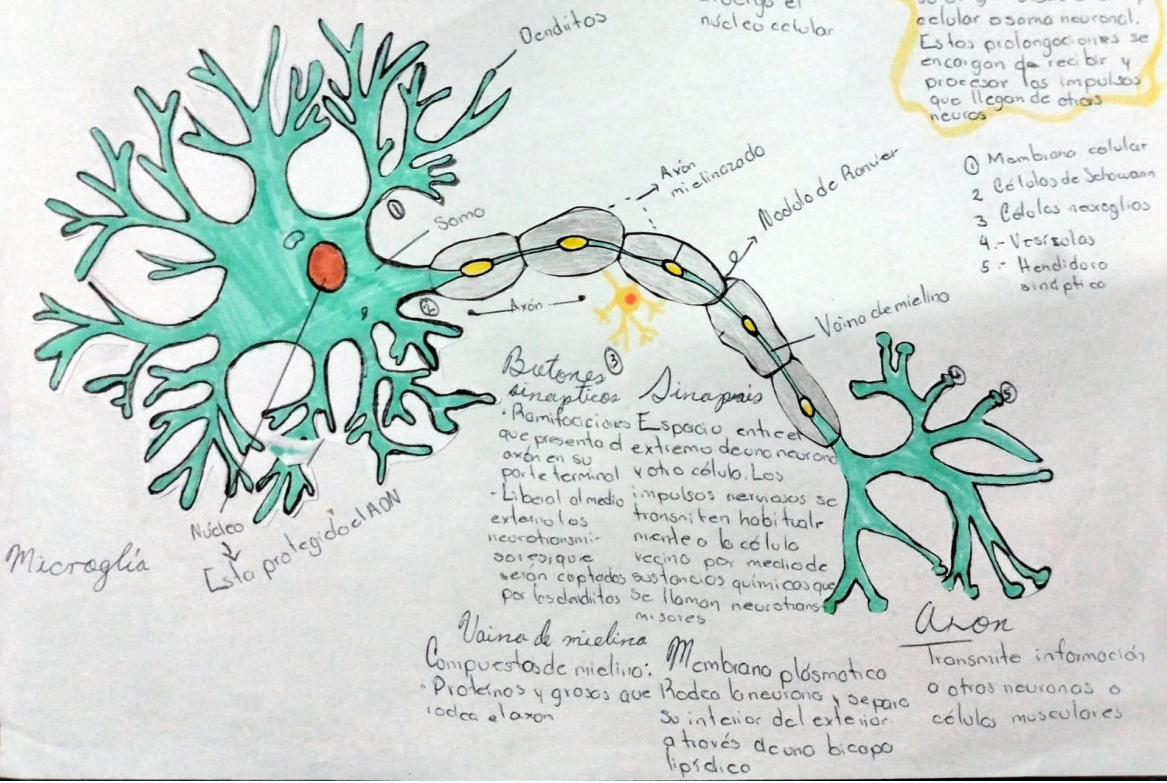 Dendiitos
núcleo celular
celular o soma neuronal.
Estas prolongaciones se
encargan de recibir y
procesor los impulsos
que llegan de otras
neuros
① Membrana celular
2 Células de Schowann
3 Células neuroglios
4.- Vesículas
5.- Hendiduro
sináptico
①
Somo
Axón
mielinazado
Nodulo de Ranvier
②
Axón
Vaina de mielino
③
④
⑤
Butones
sinapticos
· Ramificaciones
que presenta el
axón en su
parte terminal
- Liberal al medio
externo los
neurotransmi-
sores que
seran captados
por los dendiitos
Sinapsis
Espacio entre el
extremo de uno neurona
y otro célula. Los
impulsos nerviosos se
transmiten habitualr
mente a la célula
vecina por medio de
sustancias químicas que
se llaman neurotrans
misores
Núcleo
Esta protegido el ADN
Microglía
Vaina de mielina
Compuestas de mielino:
· Proteínas y grasos que
rodea el axon
Membrana plásmatica
Rodea la neurona y separa
su interior del exterior
a través de una bicapa
lipídica
Axon
Transmite información
a otros neuronas o
células musculares